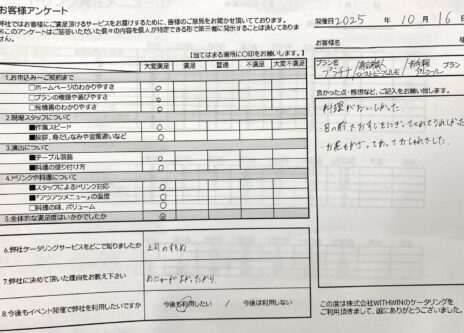 お客様アンケート
弊社ではお客様にご満足頂けるサービスをお届けするために、皆様のご意見をお聞かせ頂いております。
※このアンケートはご回答いただいた個々の内容を個人が特定できる形で第三者に開示することは決してありません。
【当てはまる場所に○印をお願いします。】
大変満足 満足 普通 不満足 大変不満足
1.お申込み～ご契約まで
□ホームページのわかりやすさ ○
□プランの種類や選びやすさ ○
□見積書のわかりやすさ ○
2.現場スタッフについて
■作業スピード ○
■挨拶、身だしなみや言葉遣いなど ○
3.演出について
■テーブル装飾 ○
■料理の盛り付け方 ○
4.ドリンクや料理について
■スタッフによるドリンク対応 ○
■「アツアツメニュー」の温度 ○
□料理の味、ボリューム ○
5.全体的な満足度はいかがでしたか ◎
6.弊社ケータリングサービスをどこで知りましたか 上司のすすめ
7.弊社に決めて頂いた理由をお教え下さい
8.今後もイベント開催で弊社を利用したいですか 今後も利用したい / 今後は利用しない
開催日 2025年 10月 16日
お客様名
プラン名 プラチナ
良かった点・感想など、ご記入をお願い致します。
料理がおいしかった
目の前でおすしをにぎってくれてうれしかった
この度は株式会社WITHWINのケータリングを
ご利用頂きまして、誠にありがとうございました。